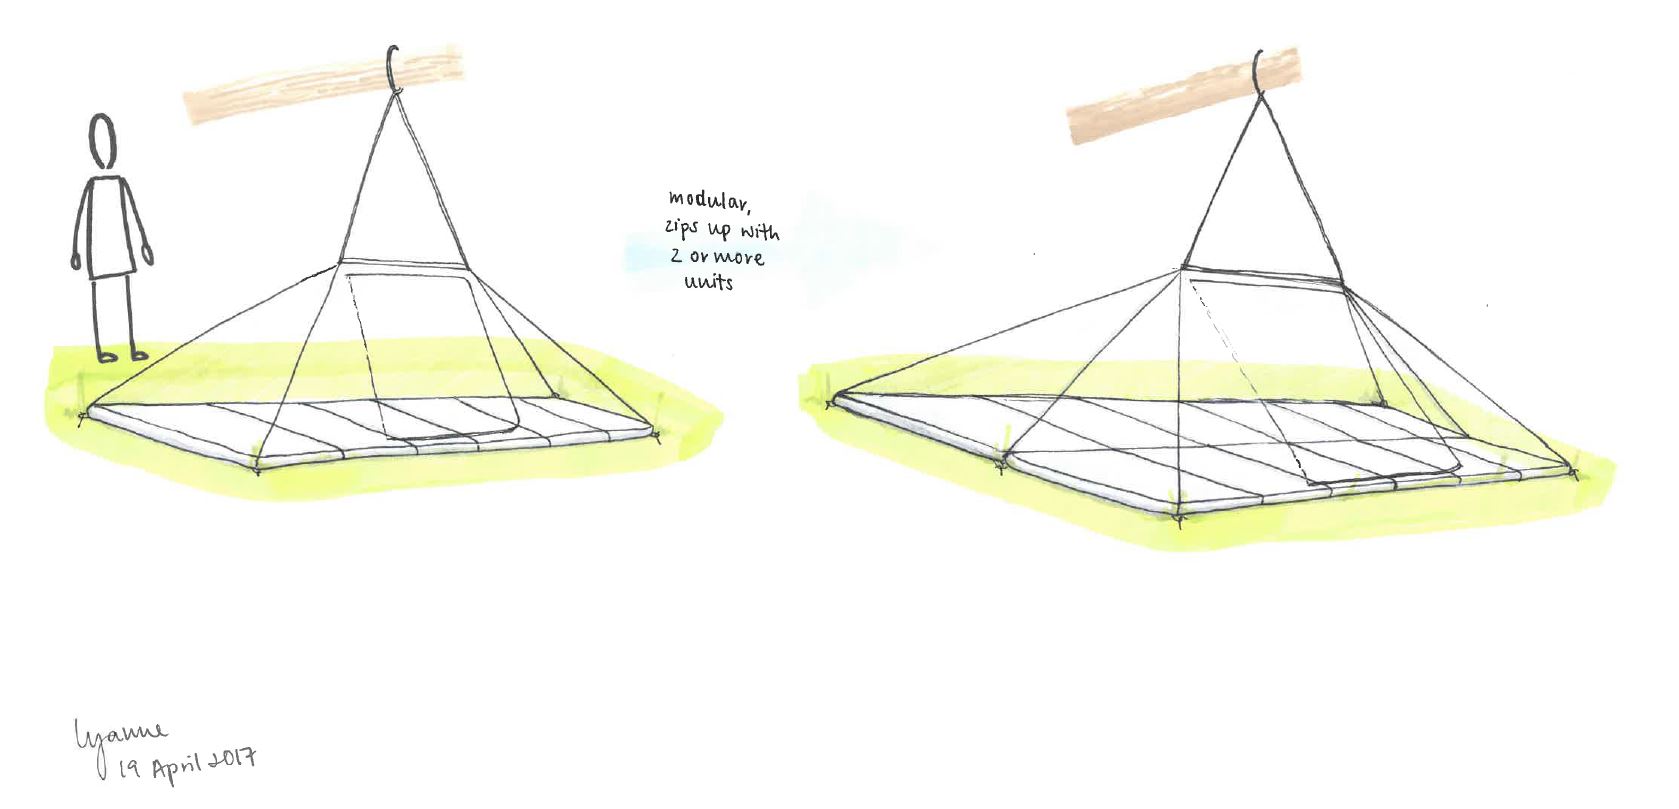 modular,
zips up with
2 or more
units
Lyanne
19 April 2017